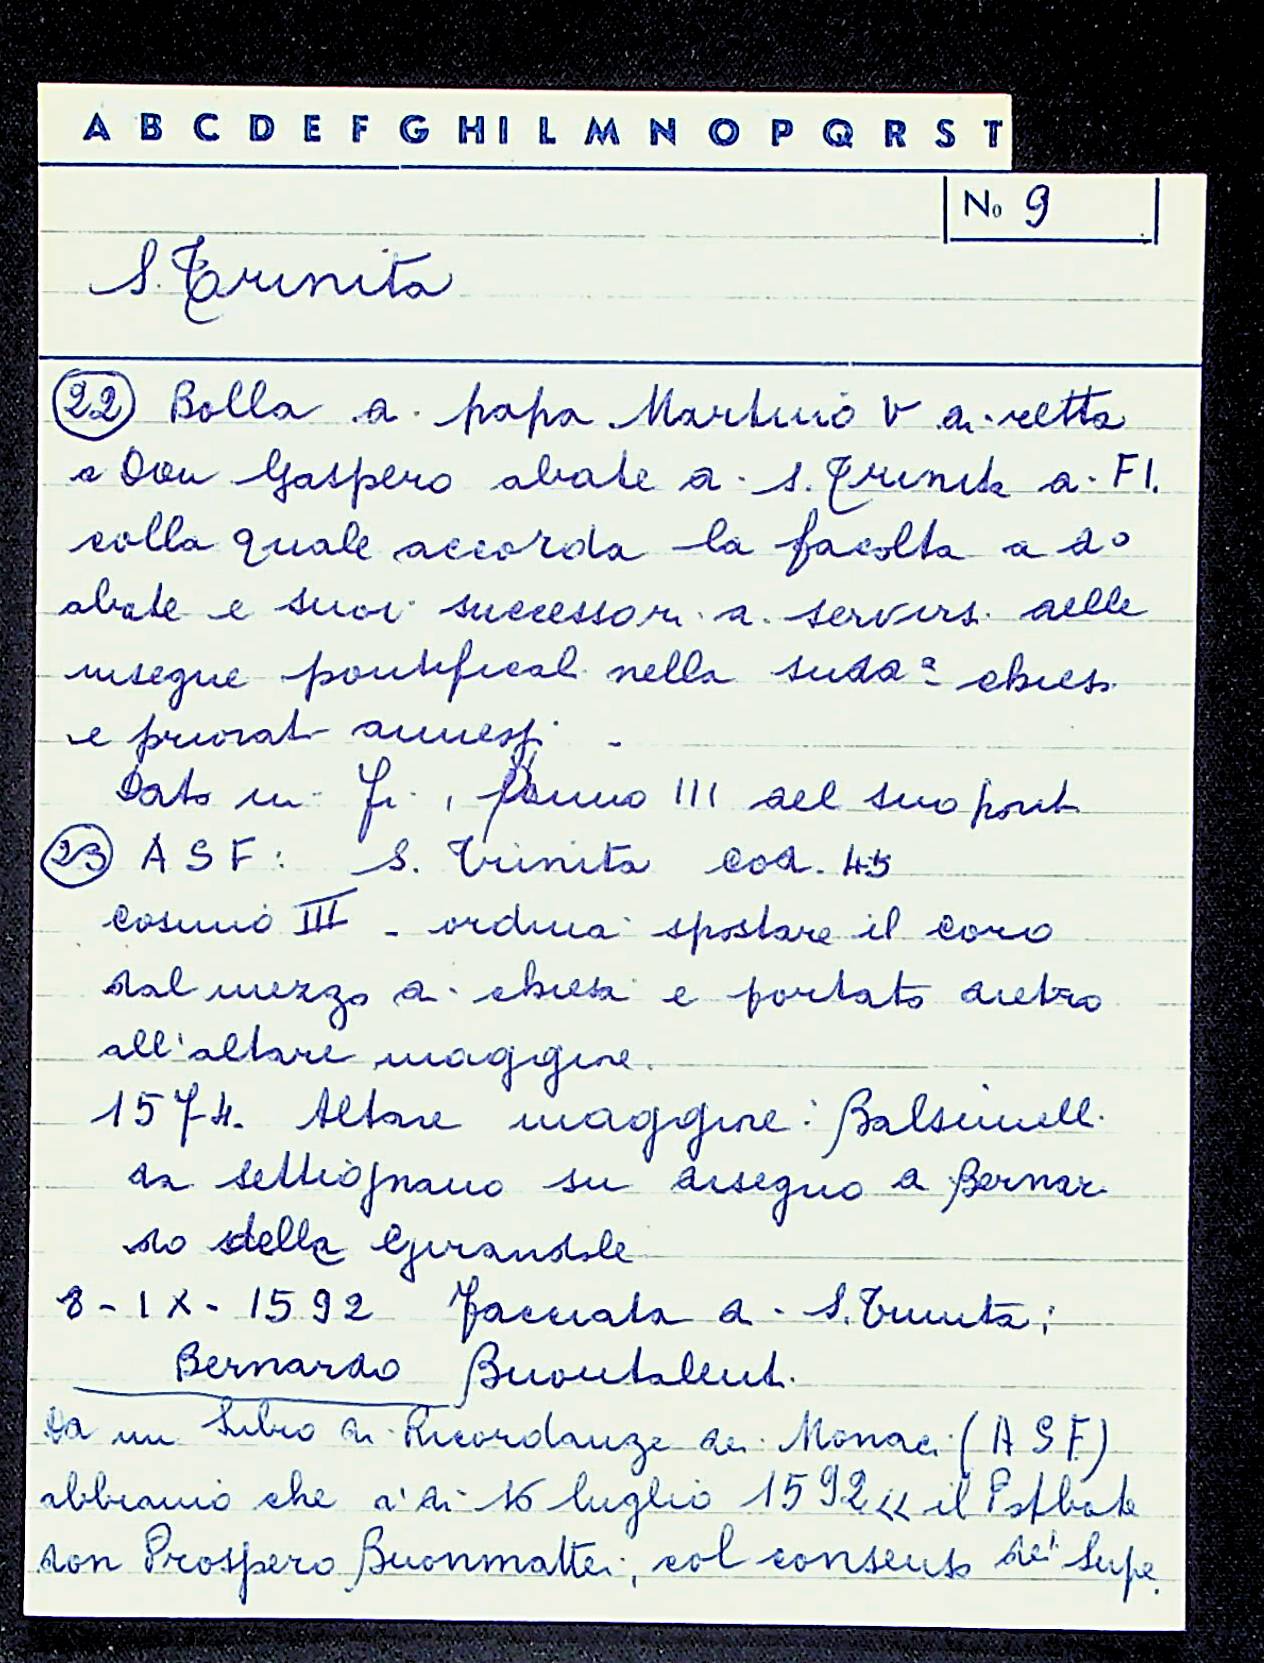 A B C D E F G H I L M N O P Q R S T
No 9
S. Trinita
22 Bolla di papa Martino V diretta
a Don Gaspero abate di S. Trinita di Fi.
colla quale accorda la facolta a do
abate e suoi successori di servirsi delle
insegne pontificali nella sudda chiesa
e priorati annessi.
Dato in Fi., l'anno III del suo pont.
23 ASF: S. Trinita Cod. 45
Cosimo III - ordina spostare il coro
dal mezzo di chiesa e portato dietro
all'altare maggiore.
1574. Altare maggiore: Balsimelli
da Settignano su disegno di Bernar
do della Girandole
8-IX-1592 Facciata di S. Trinita;
Bernardo Buontalenti.
Da un Libro di Ricordanze dei Monaci (ASF)
abbiamo che a' di 16 luglio 1592 << il P.
don Prospero Buonmattei, col consenso dei Supe.